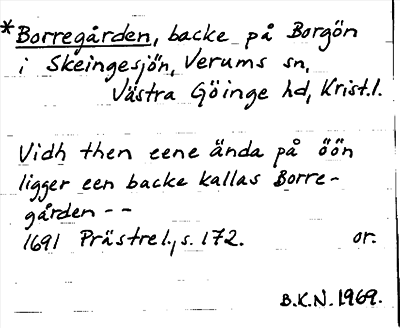 *Borregården, backe på Borgön
i Skeingesjön, Verums sn,
Västra Göinge hd, Krist.l.
Vidh then eene ända på öön
ligger een backe kallas Borre-
gården - -
1691 Prästrel., s. 172. or.
B.K.N. 1969.